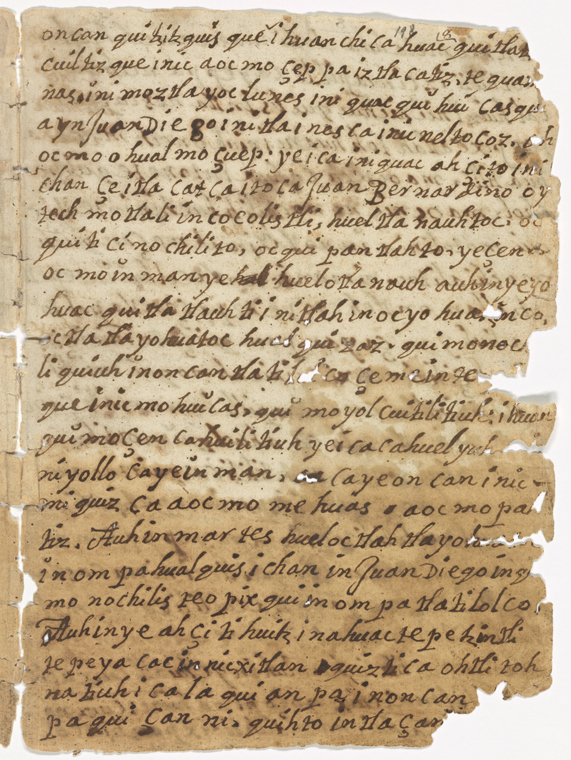 oncan quitzitzquis quê ihuan chicahuac quitlat
cuiltizque inic aocmo çeppa iztlacatiz, tequa
nas, inimoztlayoc lunes iniquac quihui casqu
ayn Juan Diego initla inescainic neltocoz, ah
ocmo ohualmoçuep. yeica iniquac ahçito ini
chan çe itla catca itoca Juan Bernardino oy
tech motlali in cocolistli, huel tlanauhtoc, oc
quiticinochilito, oc qui pan tlahto, yeçen
ocmo in man ye huelotlanauh auhinyeyo
huac quitlatlauhti initlahin ocyohuac, inco,
octlatlayohuatoc hualquizaz, quimonoc
li quiuh in oncan tlatilolco çeme in te
que inic mohuicas, qui moyolcuitilitiuh, ihuan
quimoçencahuilitiuh yeica cahuel yuh
niyollo ca ye inman, ca ye oncan inic
miquiz ca aocmo mehuas aocmo pa
tiz. Auh in martes huel oc tlahtlayohu
inompa hualquis ichan in Juan Diego inqui
monochilis teopixqui in ompa tlatilolco,
Auh inye ahçitihuitz inahuac tepetzintli
tepeyacac inicxitlan quiztica ohtli toh
natiuh icalaquianpa, in oncan
pa qui çan ni. quihto intla çan